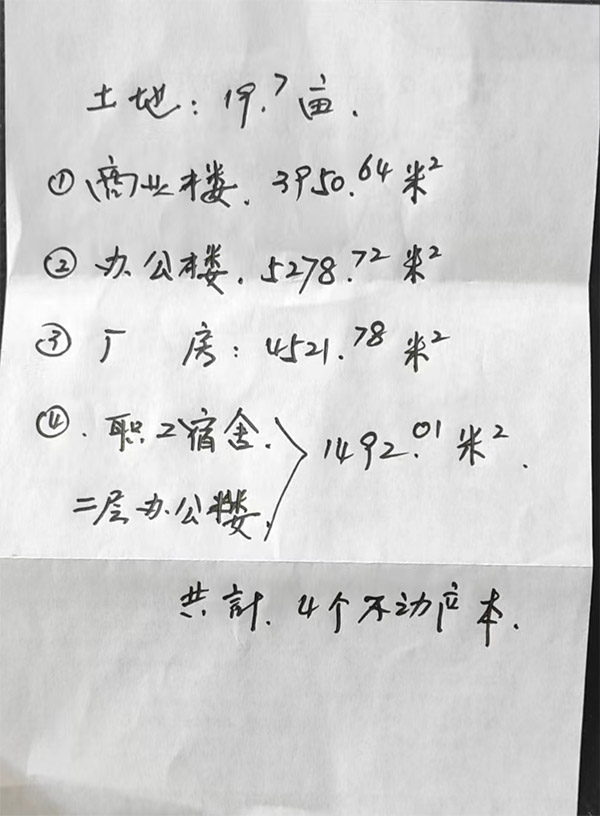 土地：19.7亩.
①商业楼. 3950.64米²
②办公楼. 5278.72米²
③厂 房：4521.78米²
④.职工宿舍. 1492.01米².
二层办公楼,
共計. 4个不动产本.